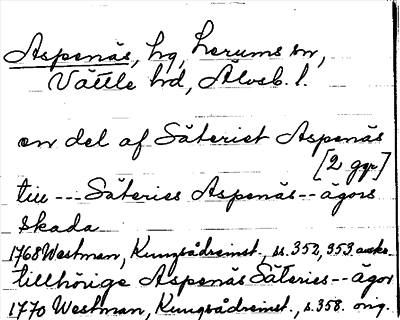 Aspenäs, hg, Lerums sn,
Vättle hd, Älvsb. l.
en del af Säteriet Aspenäs
[2 ggr]
till --- Säteries Aspenäs -- ägors
skada
1768 Westman, Kungsådreinst., ss. 352, 353 avskr.
tillhörige Aspenäs Säteries -- ägor
1770 Westman, Kungsådreinst., s. 358. orig.